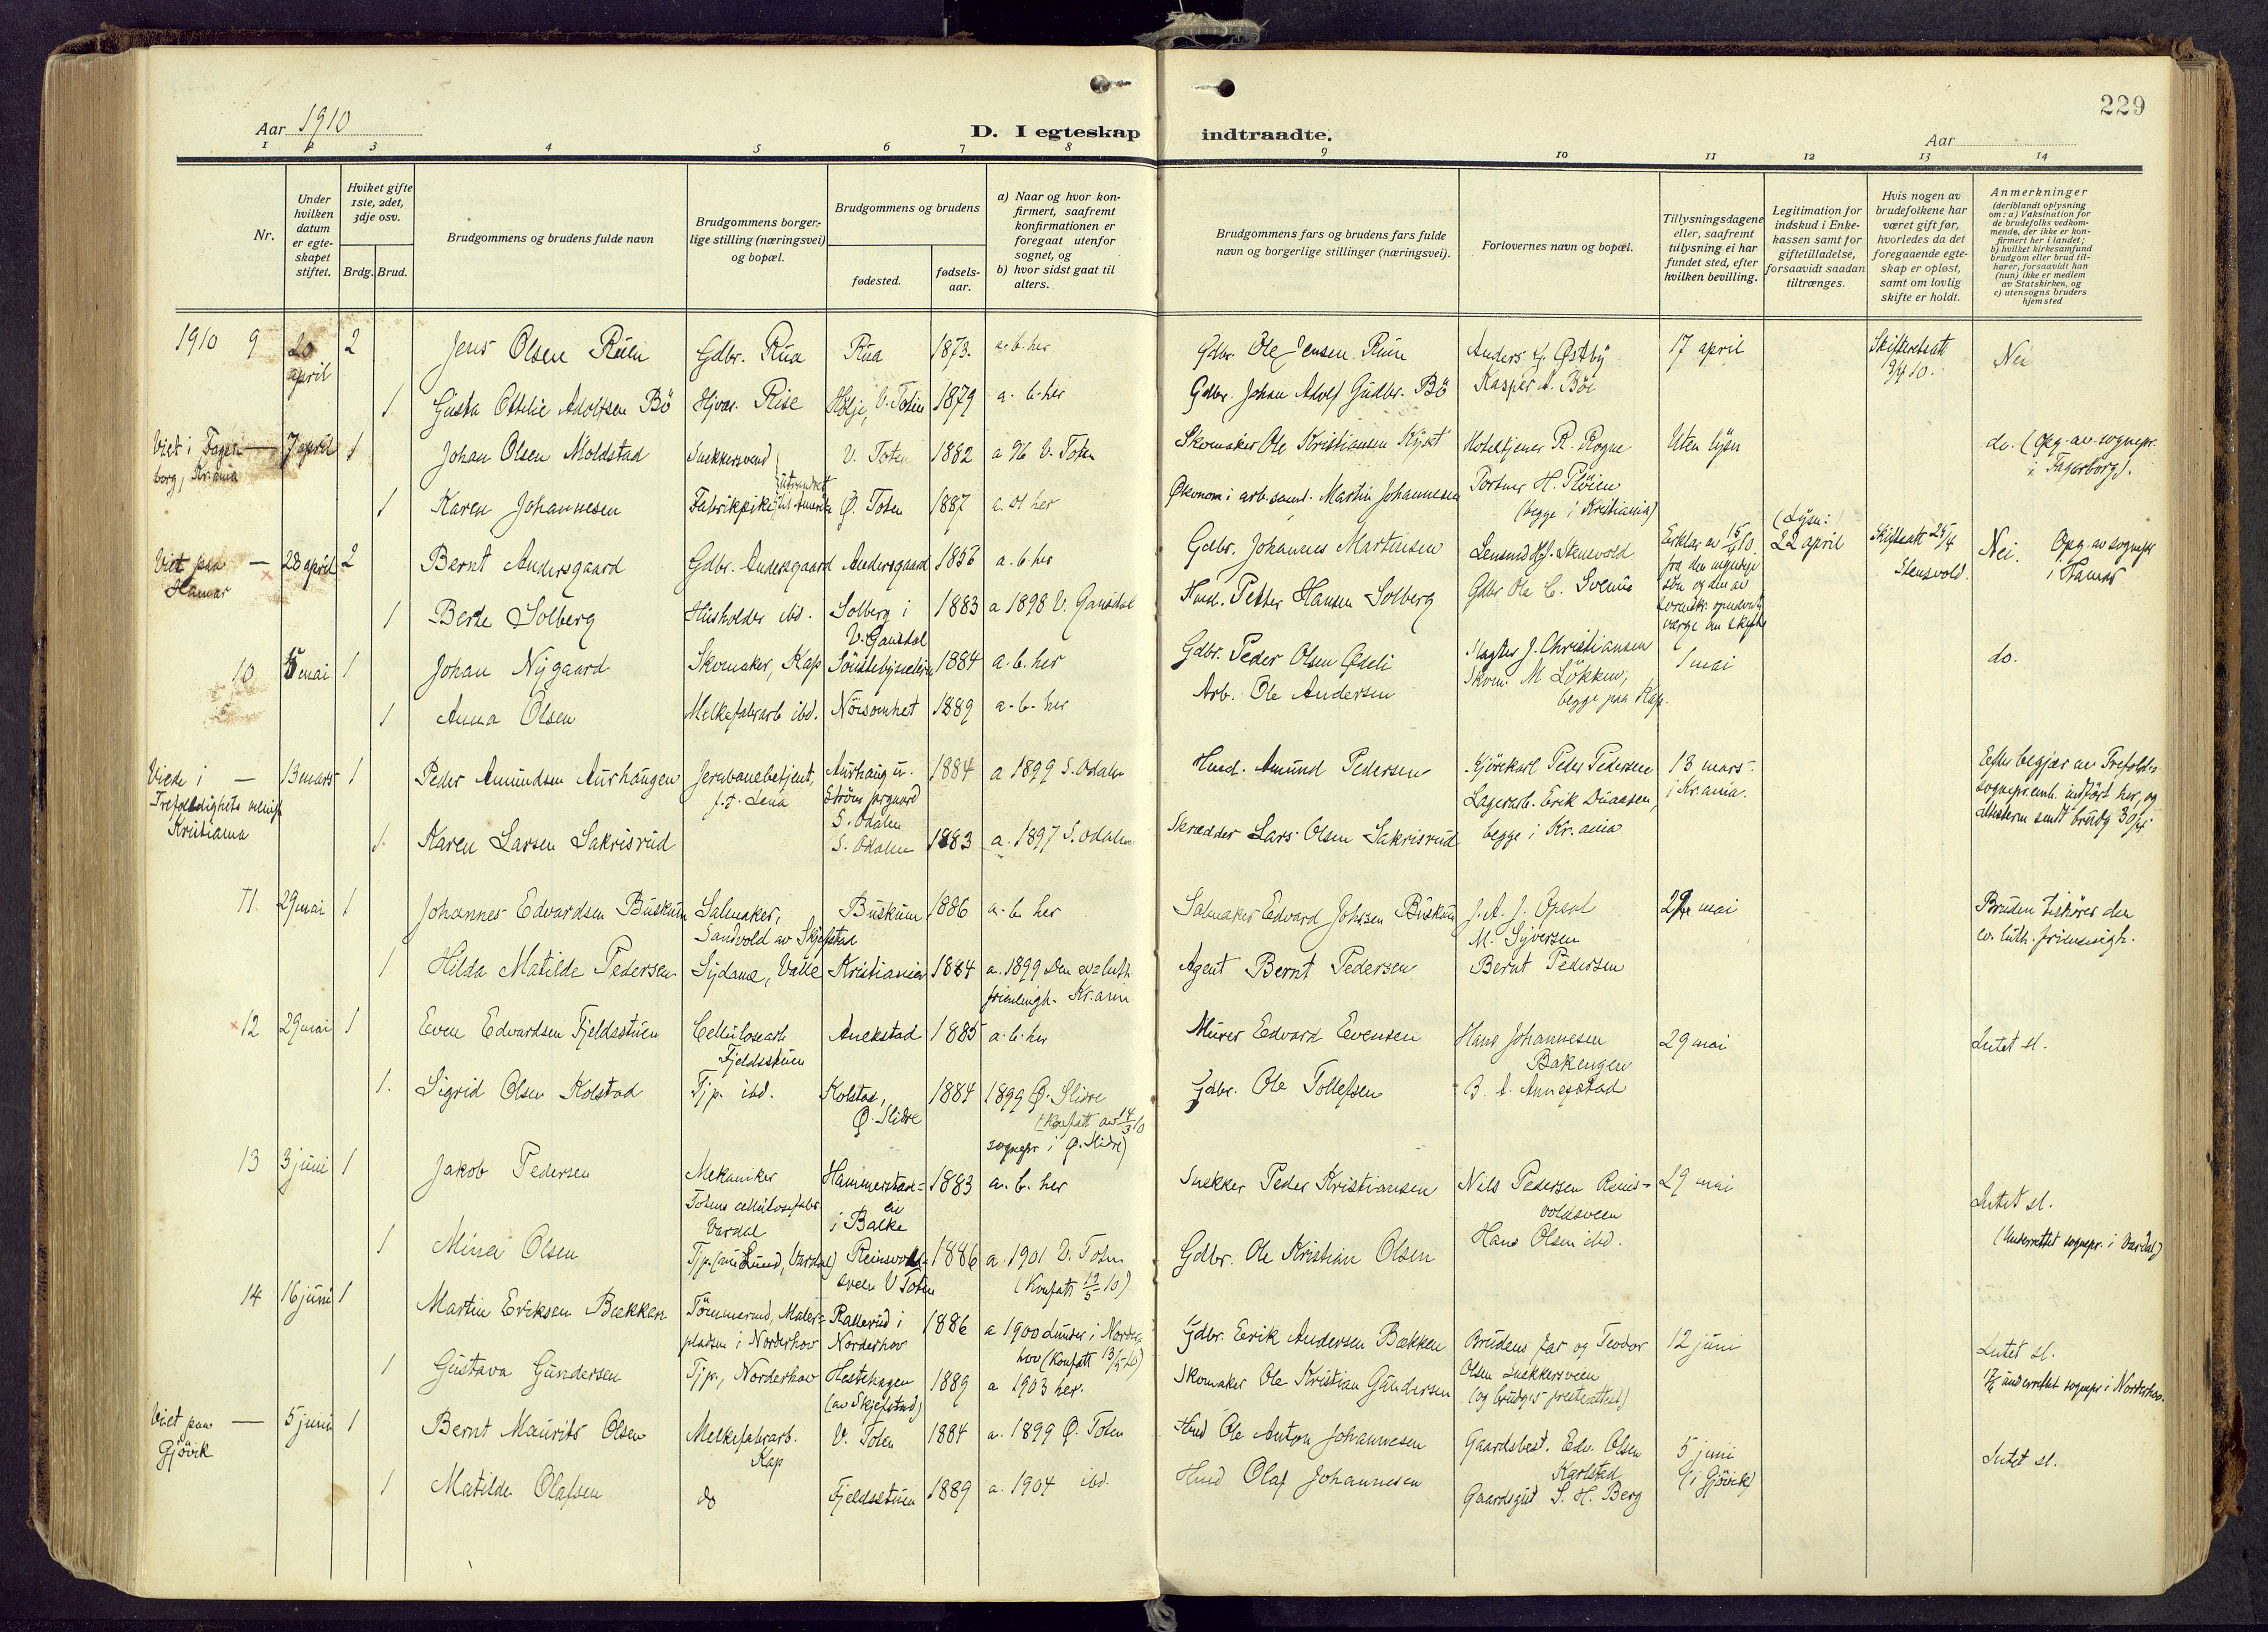 229
Aar 1910
D. I egteskap indtraadte.
Aar
1 2 3 4 5 6 7 8 9 10 11 12 13 14
Nr.
Under hvilken datum er egte-skapet stiftet.
Hviket gifte 1ste, 2det, 3dje osv.
Brdg. Brud.
Brudgommens og brudens fulde navn
Brudgommens borger-lige stilling (næringsvei) og bopæl.
Brudgommens og brudens
fødested.
fødsels-aar.
a) Naar og hvor kon-firmert, saafremt konfirmationen er foregaat utenfor sognet, og
b) hvor sidst gaat til alters.
Brudgommens fars og brudens fars fulde navn og borgerlige stillinger (næringsvei).
Forlovernes navn og bopæl.
Tillysningsdagene eller, saafremt tillysning ei har fundet sted, efter hvilken bevilling.
Legitimation for indskud i Enke-kassen samt for giftetilladelse, forsaavidt saadan tiltrænges.
Hvis nogen av brudefolkene har været gift før, hvorledes da det foregaaende egte-skap er opløst, samt om lovlig skifte er holdt.
Anmerkninger (deriblandt oplysning om: a) Vaksination for de brudefolks vedkom-mende, der ikke er kon-firmert her i landet; b) hvilket kirkesamfund brudgom eller brud til-hører, forsaavidt han (hun) ikke er medlem av Statskirken, og c) utensogns bruders hjemsted
1910 9 20 april 2 Jens Olsen Ruen Gdbr. Rua Rua 1873. a. b. her Gdbr. Ole Jensen Ruen Anders G. Østby 17 april Skifteretsatt Nei
1 Gusta Ottilie Adolfsen Bö Hjvær. Rise Hølje, V. Toten 1879 a. b. her Gdbr. Johan Adolf Gudbr. Bö Kasper A. Böe
Viet i Fager-borg, Kr.ania — 7 april 1 Johan Olsen Moldstad Snekkersvend V. Toten 1882 a 96 V. Toten Skomaker Ole Kristiansen Kyset Hoteltjener R. Rogne Uten lysn do. (Opg. av sognepr. i Fagerborg).
1 Karen Johannesen Fabrikpike Ø. Toten 1887 a. 01 her Økonom i arb.saml. Martin Johannesen Portner H. Pløien (begge i Kristiania)
Viet paa Hamar — 28 april 2 Bernt Andersgaard Gdbr. Andersgaard Andersgaard 1853 a. b. her Gdbr. Johannes Martinsen Lensmd H. J. Stensvold (Lysn: 22 april Skifteatt 25/4 Stensvold. Nei. Opg. av sognepr. i Hamar
1 Berte Solberg Husholder ibd. Solberg i V. Gausdal 1883 a 1898 V. Gausdal Husd. Petter Hansen Solberg Gdbr. Ole C. Svenne
10 5 mai 1 Johan Nygaard Skomaker, Kap 1884 a. b. her Gdbr. Peder Olsen Ødeli Slagter J. Christiansen 1 mai do.
1 Anna Olsen Melkefabrarb ibd. Nöisomhet 1889 a. b. her Arb. Ole Andersen Skom. M Løkken, begge paa Kap.
Viede i Trefoldighets menigh Kristiania — 13 mars 1 Peder Amundsen Aurhaugen Jernbanebetjent, f.t. Lena Aurhaug u. Ströms prgaard S. Odalen 1884 a 1899 S. Odalen Husd. Amund Pedersen Kjörekarl Peder Pedersen 13 mars i Kr.ania. Efter begjær av Trefold. sognepr.emb. indført her, og attesterne sendt brudg 30/4.
1. Karen Larsen Sakrisrud S. Odalen 1883 a. 1897 S. Odalen Skrædder Lars Olsen Sakrisrud Lagerarb. Erik Duaasen, begge i Kr.ania
11. 29 mai 1 Johannes Edvardsen Buskum Salmaker, Sandvold av Skjefstad Buskum 1886 a. b. her Salmaker Edvard Johnsen Buskum J. A. J. Opsal M. Syversen 29 mai Bruden tilhører den ev. luth. frimenigh.
1 Hilda Matilde Pedersen Sydame, Valle Kristiania 1884 a. 1899 Den ev=luth frimenigh. Kr.ania Agent Bernt Pedersen Bernt Pedersen
12 29 mai 1 Even Edvardsen Fjeldsstuen Cellulosearb Fjeldsstuen Anekstad 1885 a. b. her Murer Edvard Evensen Hans Johannesen Bakengen 29 mai Intet sl.
1. Sigrid Olsen Kolstad Tjp. ibd. Kolstad, Ø. Slidre 1884 1899 Ø. Slidre (Konfatt av 14/3 10 sognepr i Ø. Slidre) Gdbr. Ole Tollefsen B. A. Annexstad
13 3 juni 1 Jakob Pedersen Mekaniker Totens cellulosefabr Vardal Hammerstad= i Balke 1883 a. b. her Snekker Peder Kristiansen Nils Pedersen Reins-voldsveen 29 mai Intet sl.
1 Mina Olsen Tjp. Lund, Vardal) Reinsvolds-sveen V Toten 1886 a. 1901 V. Toten (Konfatt 19/5 10) Gdbr. Ole Kristian Olsen Hans Olsen ibd. (Underrettet sognepr. i Vardal)
14 16 juni 1 Martin Eriksen Bækken Tömmermd, Maler-pladsen i Norderhov Rallerud i Norderhov 1886 a 1900 Lunder i Norder-hov (Konfatt 13/5 10) Gdbr. Erik Andersen Bækken Brudens far og Teodor 12 juni Intet sl.
1 Gustava Gundersen Tjp., Norderhov Hestehagen (av Skjefstad) 1889 a 1903 her. Skomaker Ole Kristian Gundersen Olsen Snekkersveen (og brudg.s presteattest) underrettet sognepr i Norderhov.
Viet paa Gjövik — 5 juni 1 Bernt Maurits Olsen Melkefabrarb. Kap V. Toten 1884 a. 1899 Ø. Toten Husd Ole Anton Johannesen Gaardsbest. Edv. Olsen Karlstad 5 juni (i Gjövik) Intet sl.
1 Matilde Olafsen do Fjeldsstuen 1889 a. 1904 ibd. Husd Olaf Johannesen Gaardsgut S. H. Berg